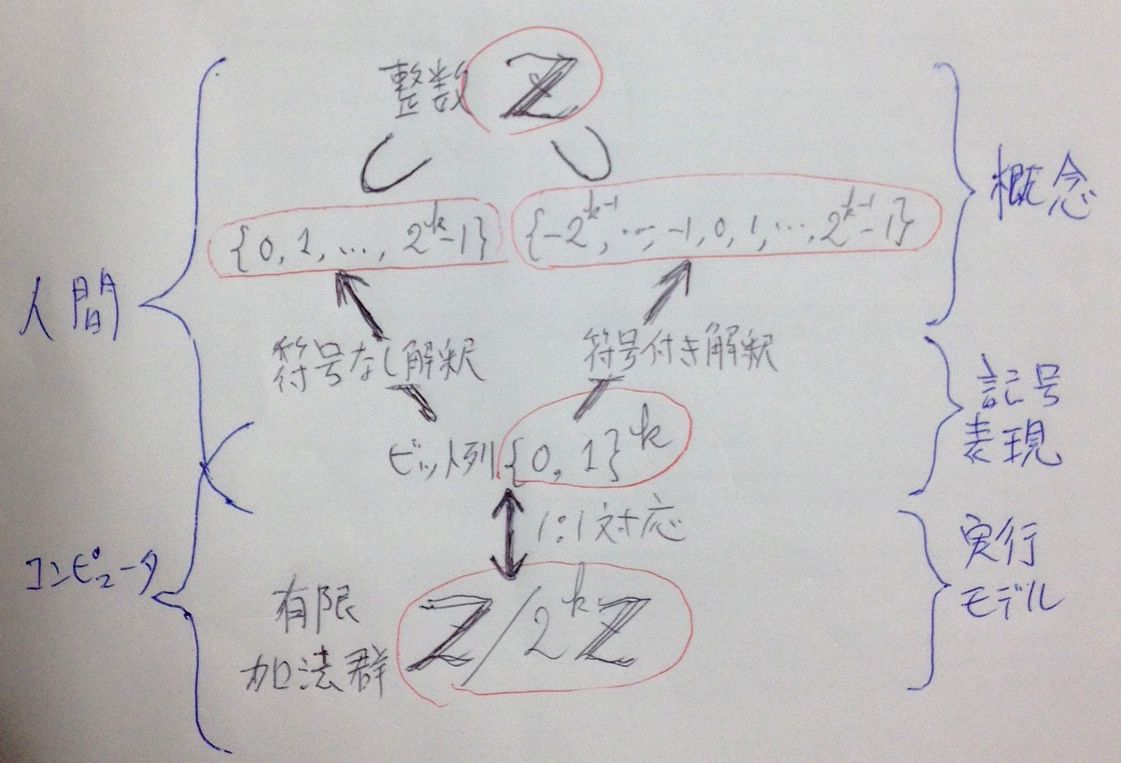 整数 ℤ
{0, 1, ..., 2^k-1}
{-2^{k-1}, ..., -1, 0, 1, ..., 2^{k-1}-1}
概念
人間
符号なし解釈
符号付き解釈
記号
表現
ビット列{0, 1}^k
1:1対応
実行
モデル
コンピュータ
有限
加法群
ℤ/2^kℤ